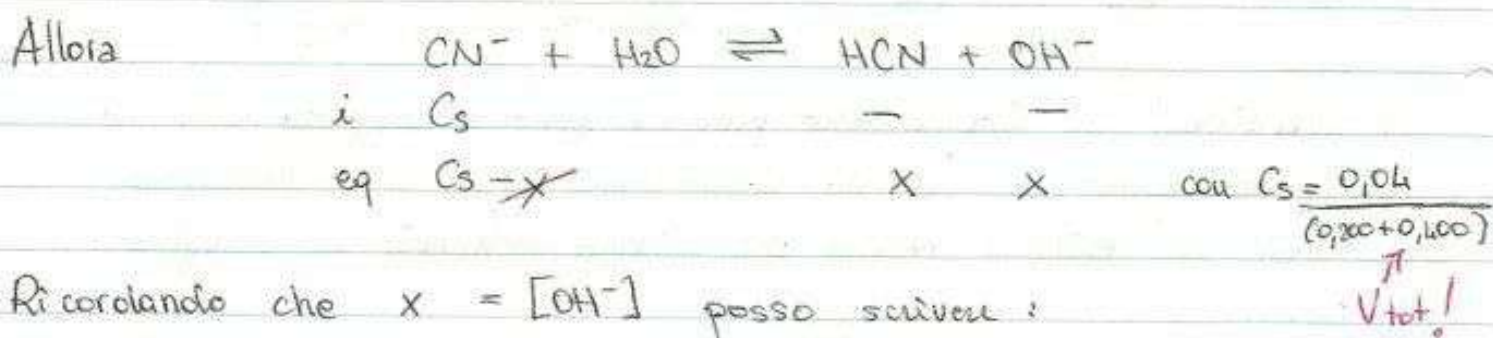 Allora CN⁻ + H₂O ⇌ HCN + OH⁻
i Cs — —
eq Cs - x x x con Cs = 0,04
(0,200+0,400)
Ricordando che x = [OH⁻] posso scrivere :
V tot!